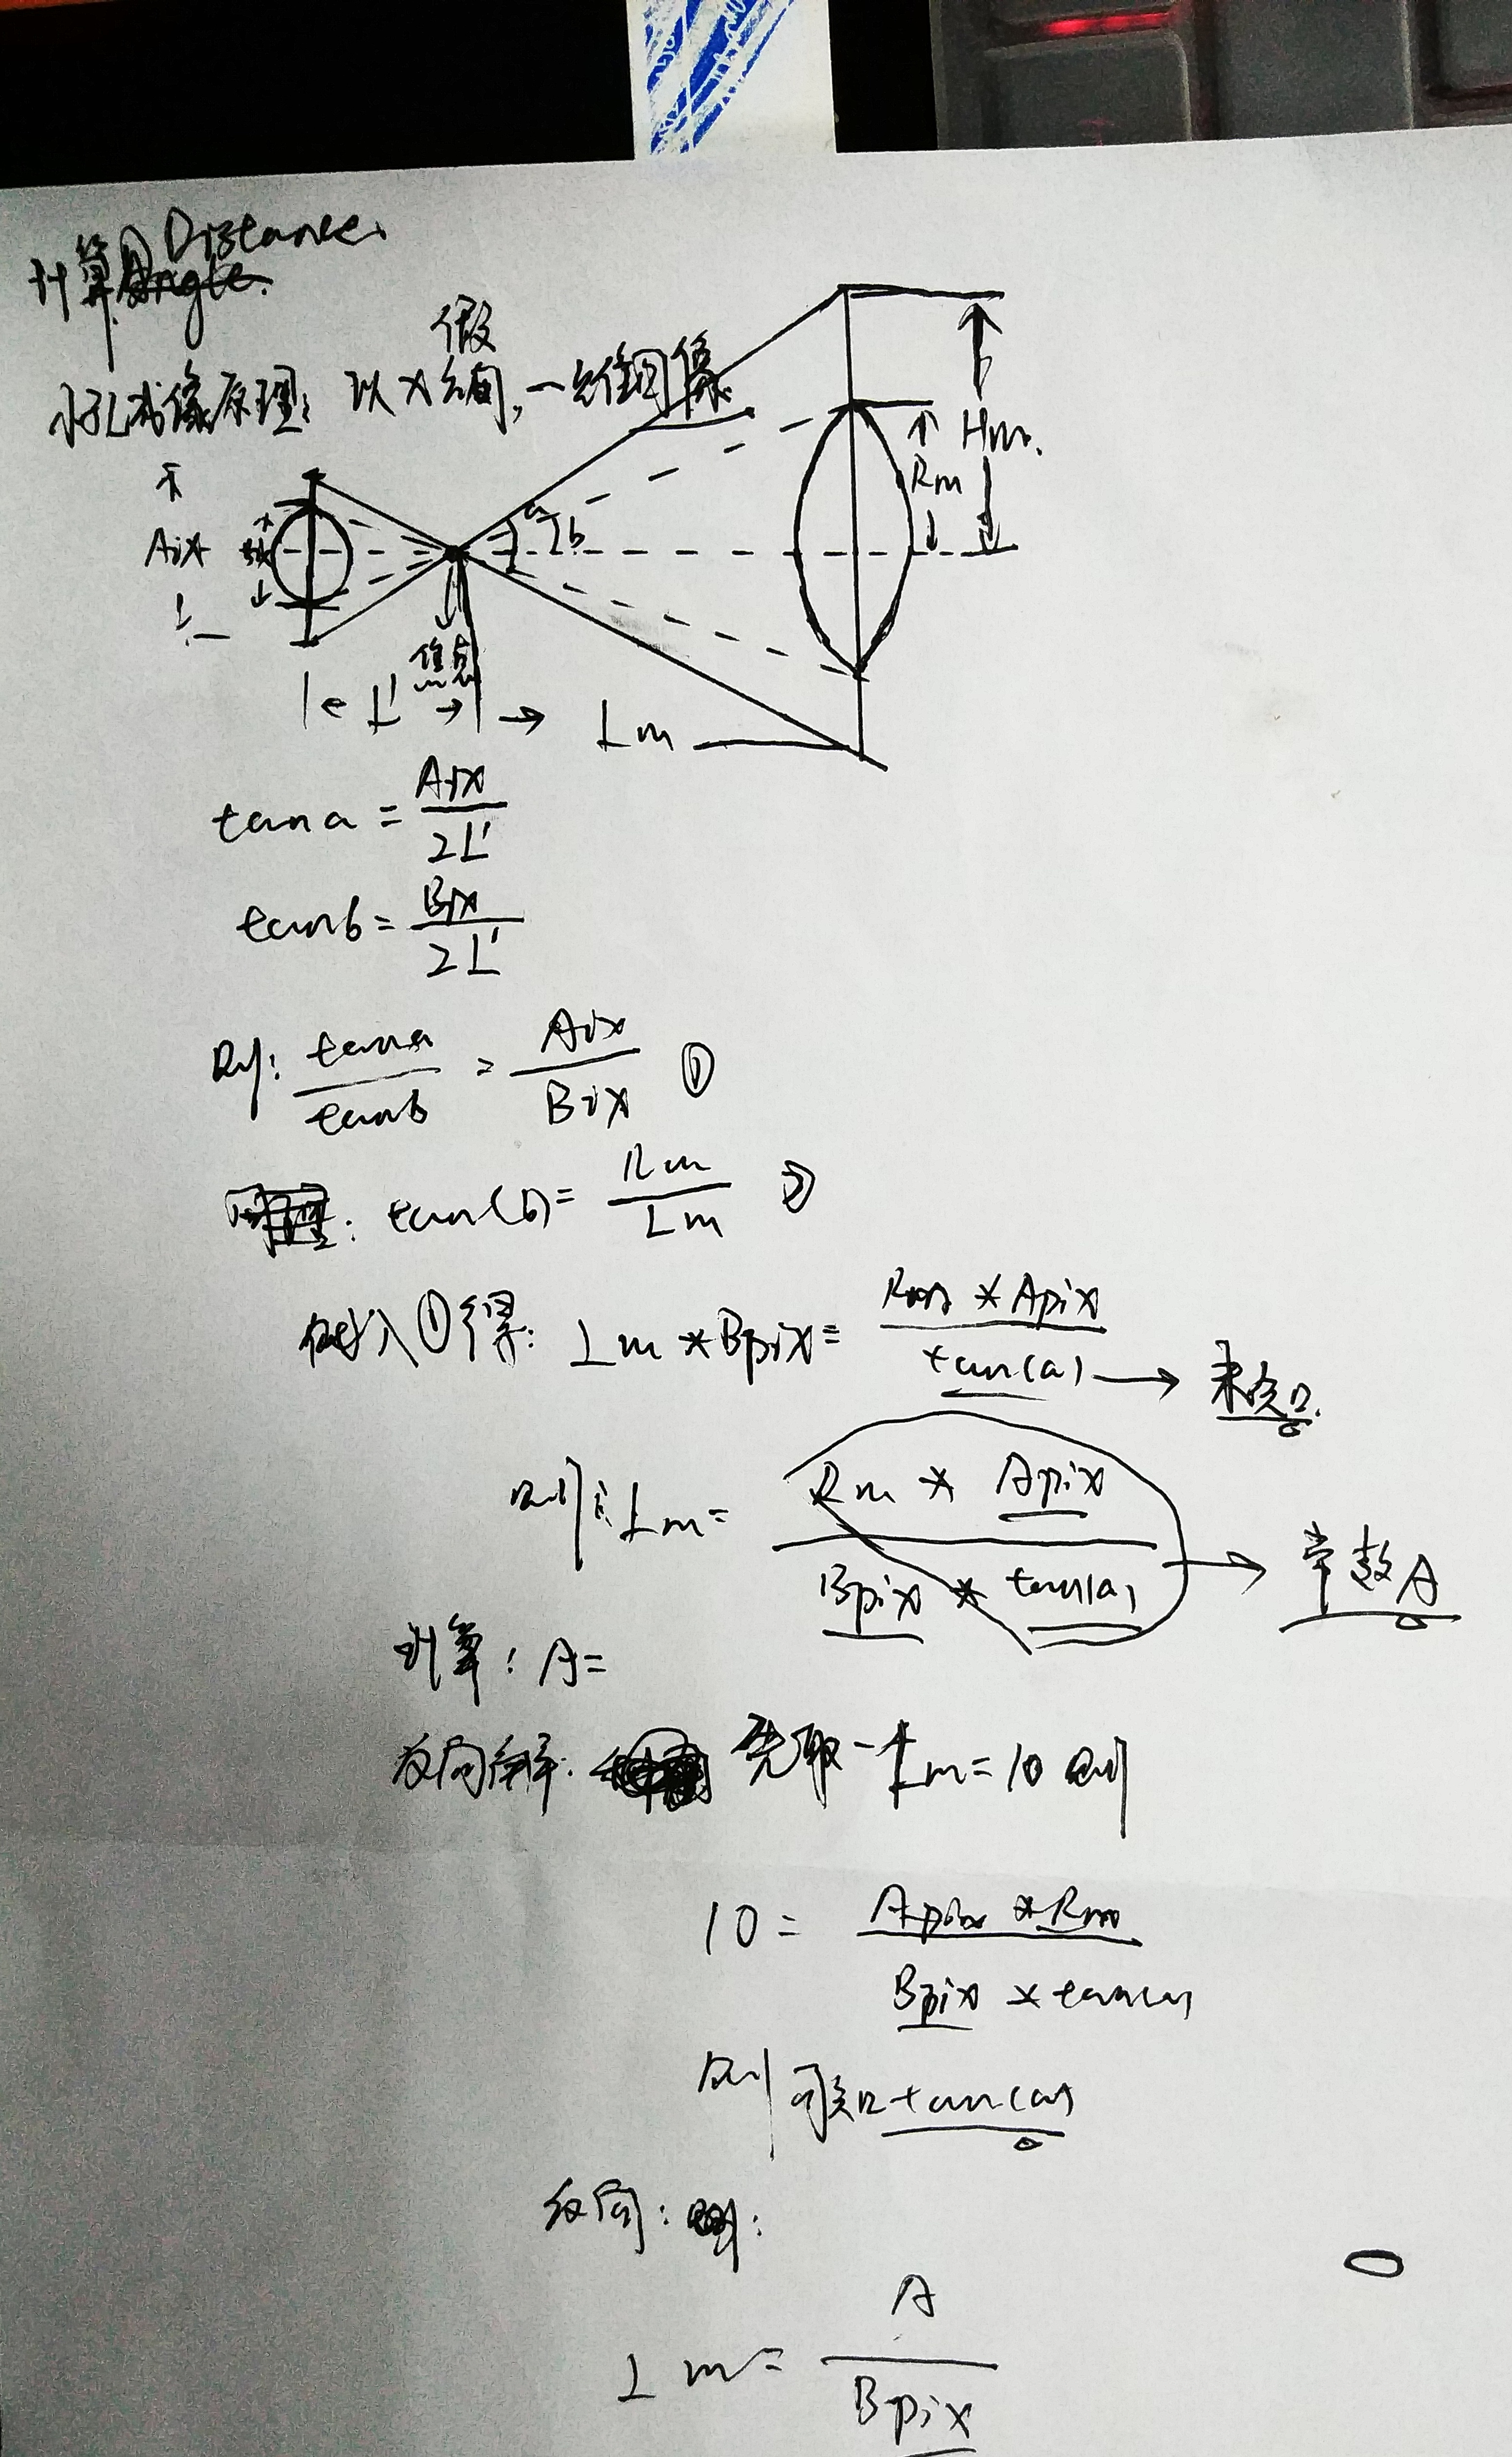 计算 Distance.
Angle.
小孔成像原理: 以X轴向, 一维图像.
做
Apix
Hm.
Rm
a
b
焦点
L'
Lm
tan a = Apix / 2L'
tan b = Bpix / 2L'
则: tan a / tan b = Apix / Bpix ①
同理: tan(b) = Rm / Lm ②
代入①得: Lm * Bpix = Rm * Apix / tan(a) → 未知.
则: Lm = Rm * Apix / Bpix * tan(a) → 常数A
计算: A=
反向解: 先取一个 Lm = 10 则
10 = Apix * Rm / Bpix * tan(a)
则可知 tan(a)
反向: 则:
Lm = A / Bpix